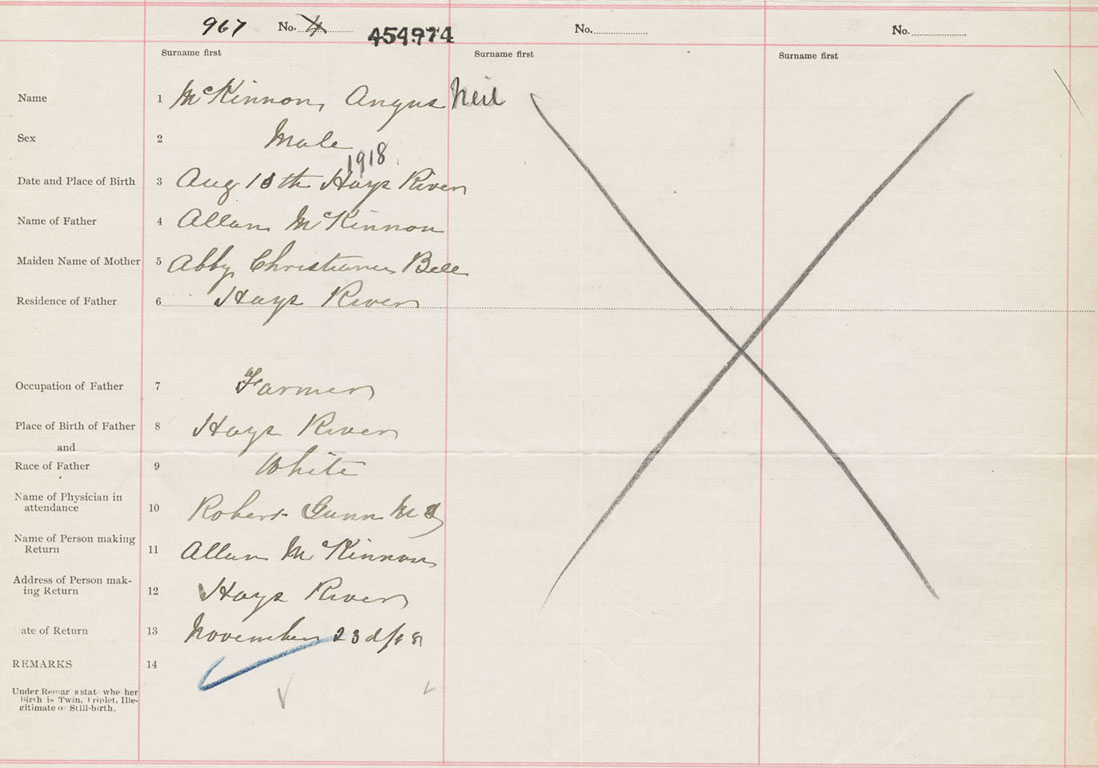 967 No. 4 454974 No. No.
Surname first Surname first Surname first
Name 1 McKinnon, Angus Neil
Sex 2 Male
1918
Date and Place of Birth 3 Aug 18th Hays River
Name of Father 4 Allan McKinnon
Maiden Name of Mother 5 Abby Bell
Residence of Father 6 Hays River
Occupation of Father 7 Farmer
Place of Birth of Father 8 Hays River
and
Race of Father 9 White
Name of Physician in
attendance 10 Robert Gunn MD
Name of Person making
Return 11 Allan McKinnon
Address of Person mak-
ing Return 12 Hays River
ate of Return 13 November 23d/18
REMARKS 14
Under Remar s stat whe her
birth is Twin, Triplet, Ille-
gitimate o Still-birth.